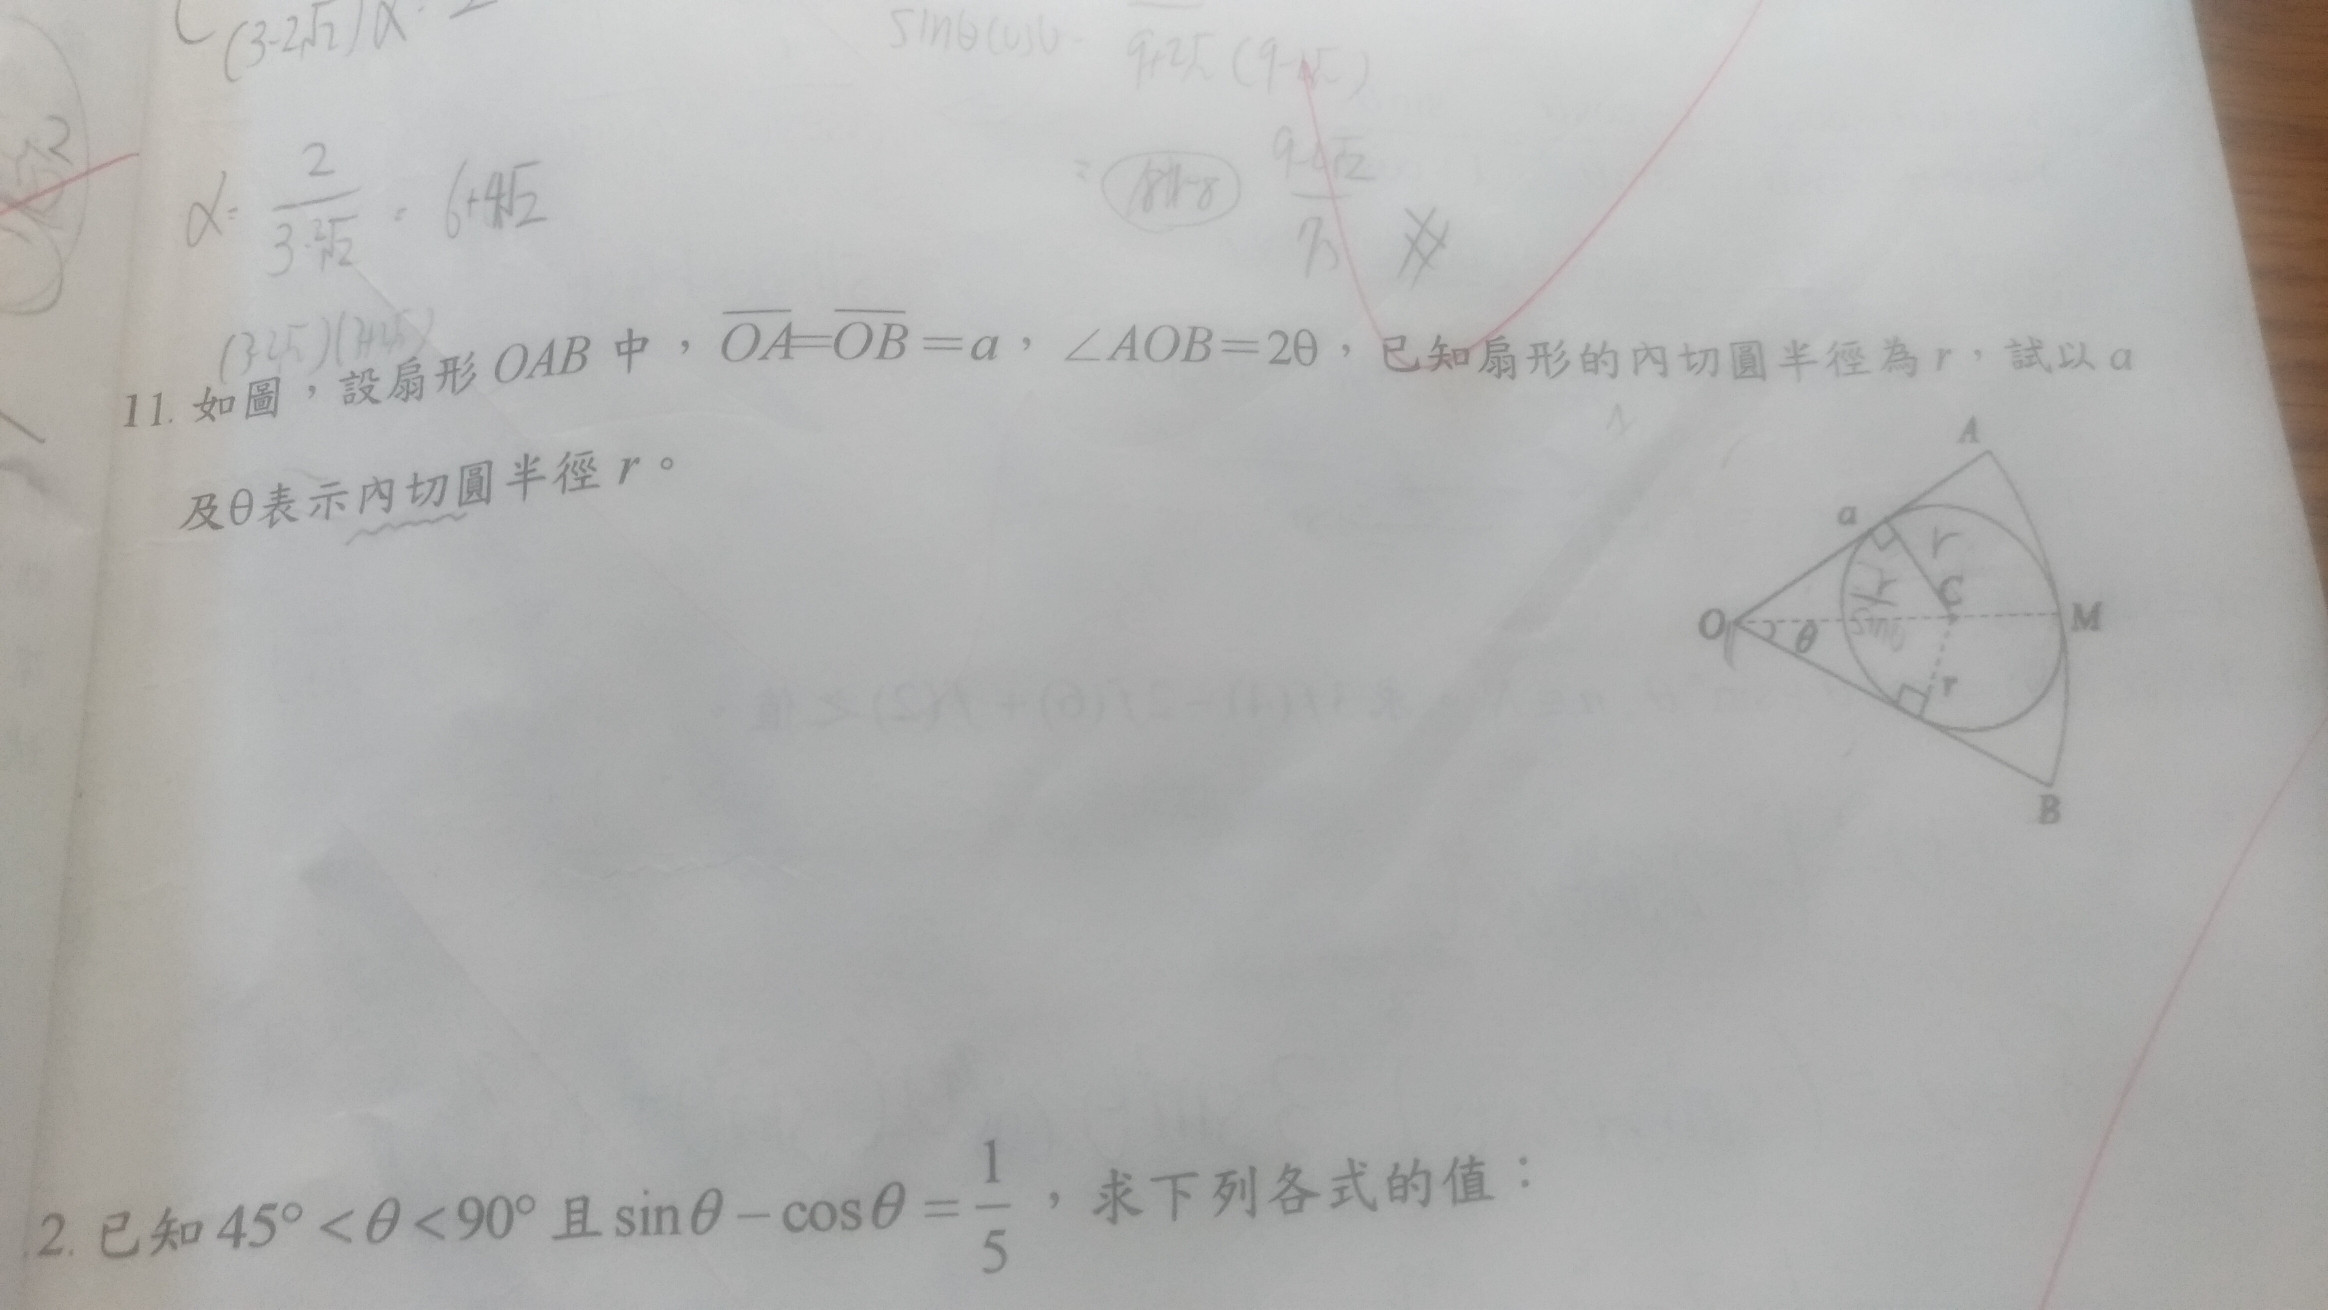 (3-2√2)α
sinθcosθ
9+2√2 (9-
α = 2/(3-2√2) = 6+4√2
9-6√2
(3-2√2)(3+2√2)
11. 如圖，設扇形 OAB 中， OA=OB=a， ∠AOB=2θ，已知扇形的內切圓半徑為 r，試以 a
及θ表示內切圓半徑 r。
A
a
r
r/sinθ
C
O
θ
M
r
B
2. 已知 45°<θ<90° 且 sinθ-cosθ=1/5，求下列各式的值：